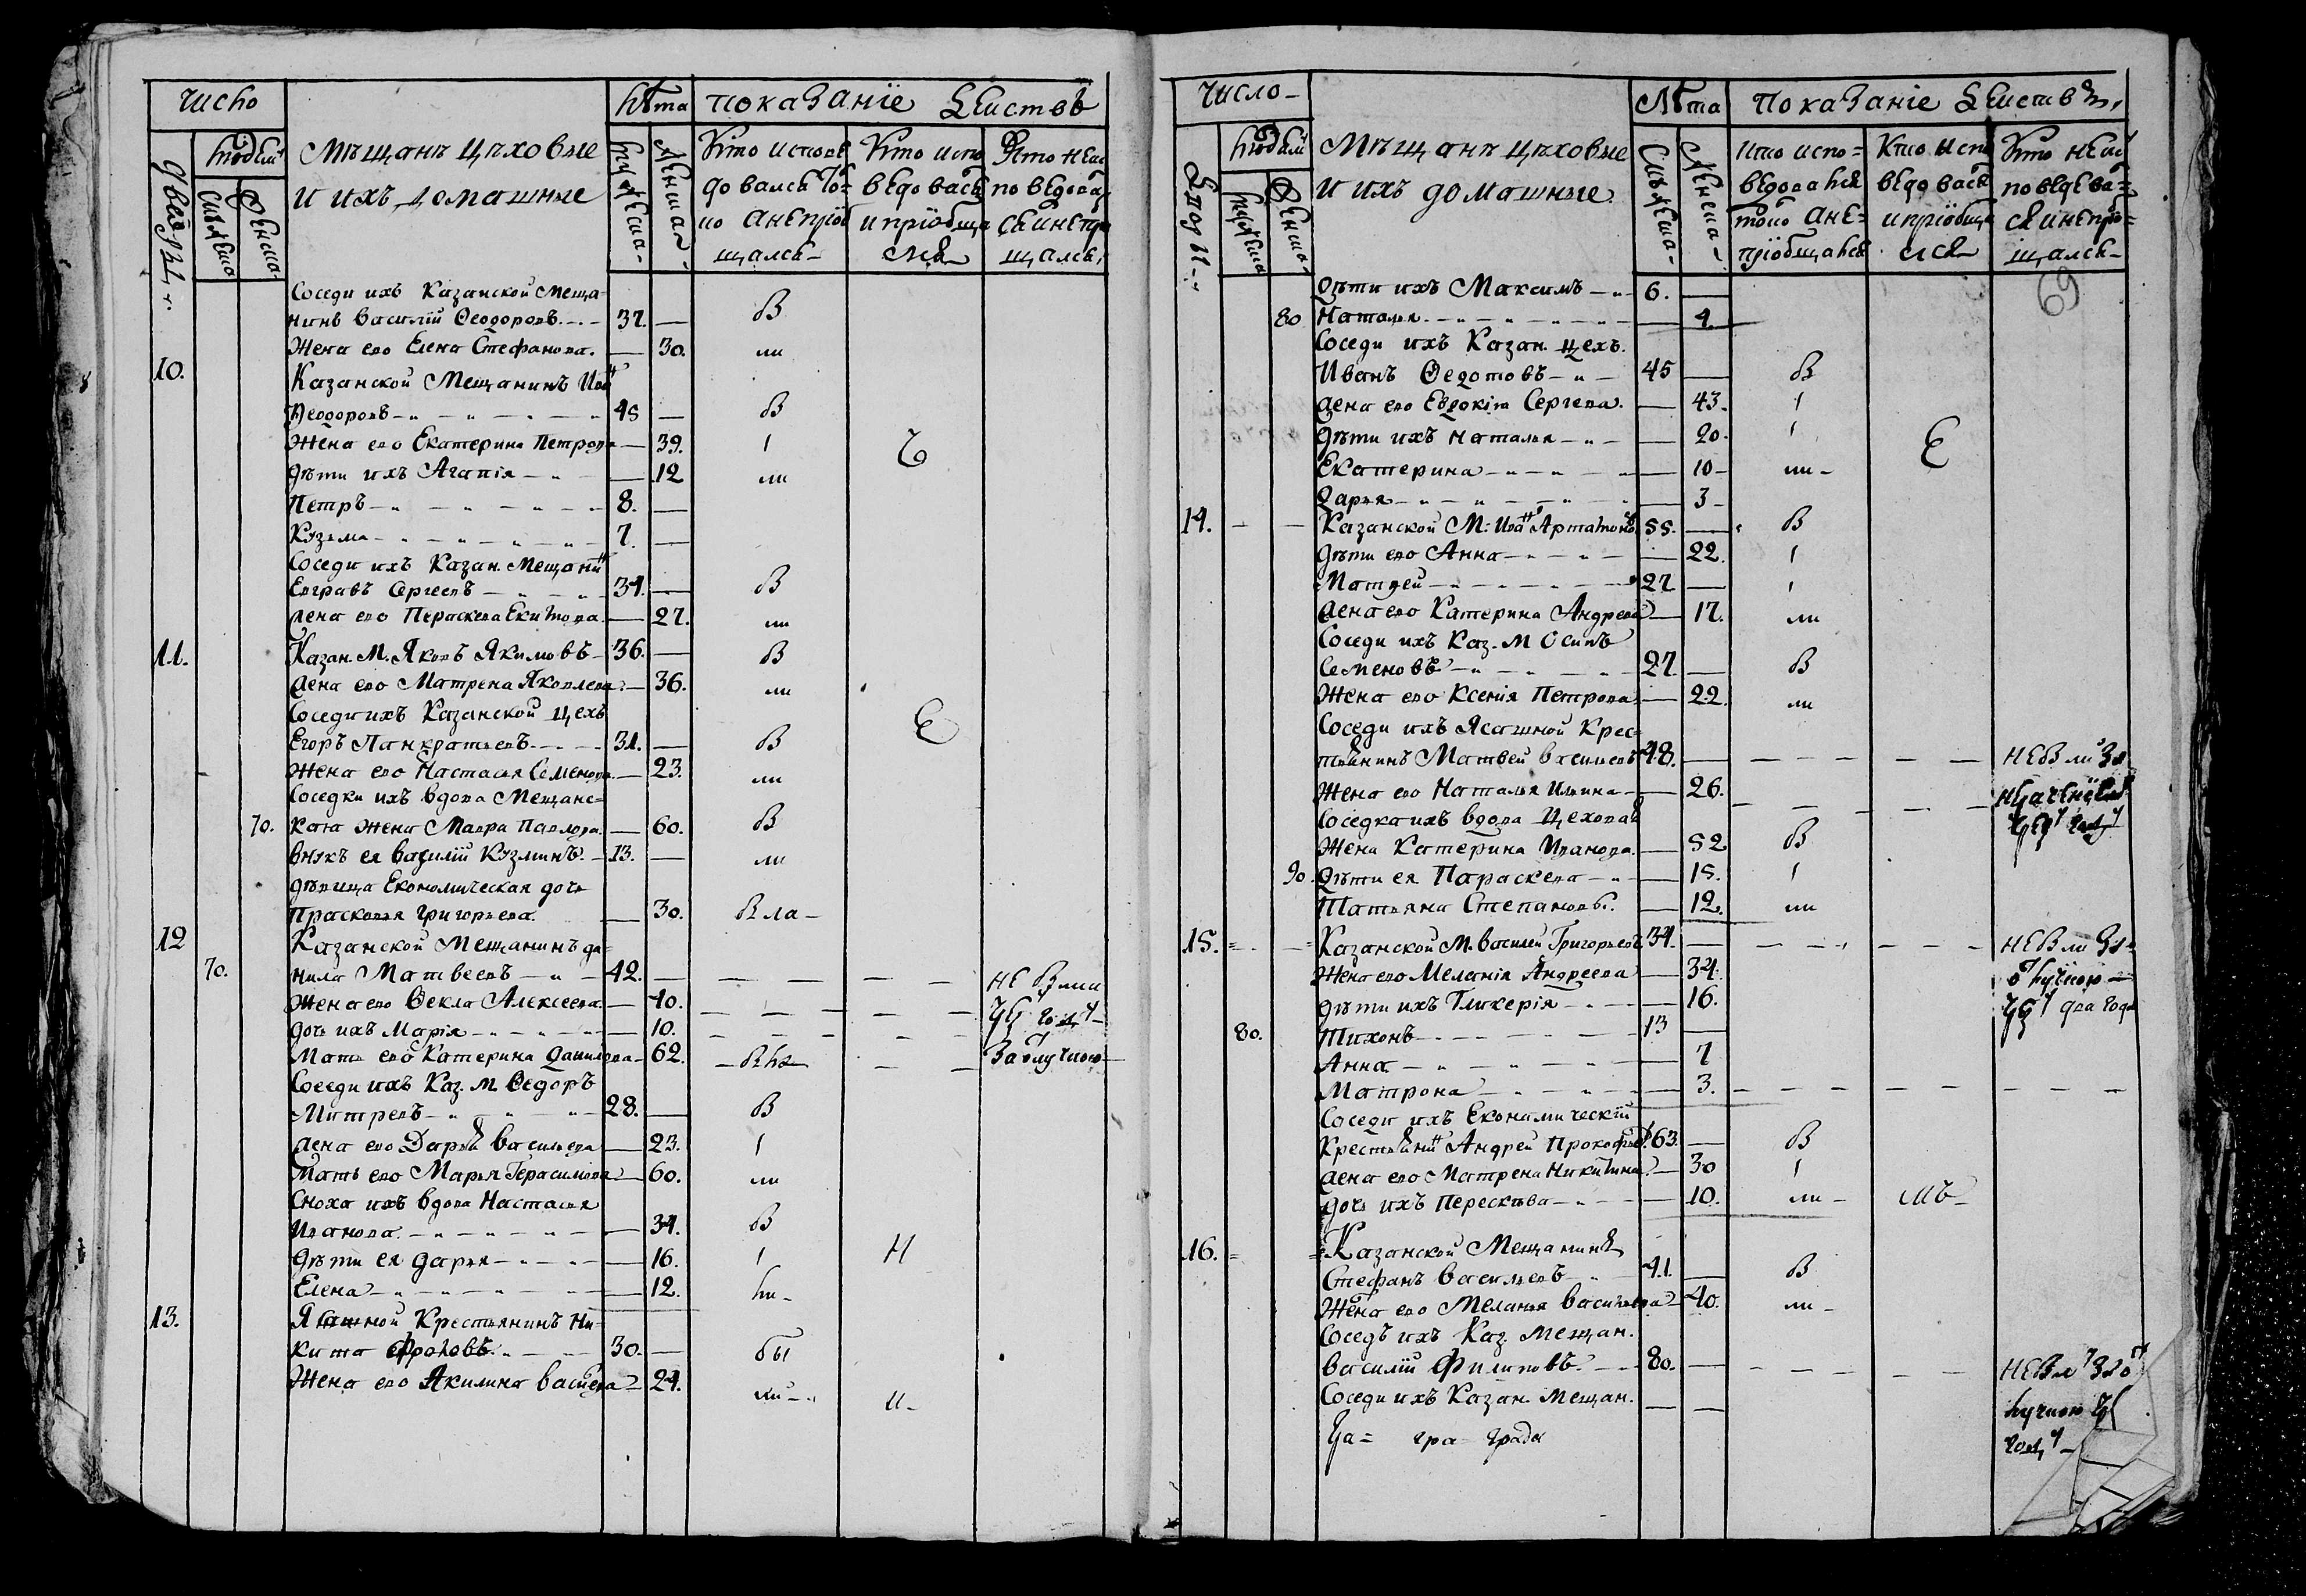 Число
Лѣта показанїе дѣиствъ
людей мѣщанъ цѣховые
и ихъ домашные
Кто исповѣдовался токмо а не прїобщался
Кто исповѣдовася и прїобщался
Кто не исповѣдовался и не прїобщался
Соседи ихъ Казанской Меща=
нинъ Василiй Ѳеодоровъ 37. В
Жена его Елена Стефанова. 30. ли
10. Казанской Мещанинъ Иванъ
Ѳеодоровъ 45 В
Жена его Екатерина Петрова 39.
Дѣти ихъ Агапiя 12 ли
Петръ 8.
Кузьма 7.
Соседи ихъ Казан. Мещанинъ
Евграѳъ Сергеевъ 34. В
Жена его Параскева 27. ли
11. Казан. М. Яковъ Якимовъ 36. В
Жена его Матрена Яковлева 36. ли
Соседи ихъ Казанской цехъ
Егоръ Панкратьевъ 31. В
Жена его Настасья Семенова 23. ли
Соседки ихъ вдова Мещанс=
70. кая Жена Мавра Павлова 60. В
внукъ ея Василiй Кузминъ. 13. ли
дѣвица Економическая дочь
Прасковья Григорьева. 30. Вла
12 Казанской Мещанинъ да=
70. нила Матвеевъ 42. НЕ Были
Жена его Ѳекла Алексеева 40.
дочь ихъ Марiя 10.
Мать его Катерина Данилова 62. За отлучкою
Соседи ихъ Каз. М. Ѳедоръ
Митревъ 28. В
Жена его Дарья Васильева 23.
Мать его Марья Герасимова 60. ли
Сноха ихъ вдова Настасья
Иванова 34. В
Дѣти ея Дарья 16. Н
Елена 12. ли
13. Ясашной Крестьянинъ Ни=
кита Фроловъ. 30. бы
Жена его Акилина 24. ли
Число
Лѣта показанiе дѣиствъ
людей мѣщанъ цѣховые
и ихъ домашные
Кто исповѣдовался токмо а не прїобщался
Кто исповѣдовася и прїобщался
Кто не исповѣдовался и не прїобщался
69
Дѣти ихъ Максимъ 6.
80 Наталья 4.
Соседи ихъ Казан. цехъ.
Иванъ Ѳедотовъ 45 В
Жена его Евдокiя Сергеева. 43.
Дѣти ихъ Наталья 20. Е
Екатерина 10 ли
Дарья 3
14. Казанской М. Иванъ 55. В
Дѣти его Анна 22.
Матвей 27
Жена его Катерина Андреева 17. ли
Соседи ихъ Каз. М Осипъ
Семеновъ 27 В
Жена его Ксенiя Петрова 22. ли
Соседи ихъ Ясашной Крес=
тьянинъ Матвей Васильевъ 48. НЕ Были За
Жена его Наталья Ильина 26.
Соседка ихъ вдова Цеховая
Жена Катерина Иванова. 52 В
90. Дѣти ея Параскева 15.
Татьяна Степановы. 12. ли
15. Казанской М. Василей Григорьевъ 34. НЕ Были За
Жена его Меланiя Андреева 34. отлучкою
Дѣти ихъ Гликерiя 16. два года
80. Тихонъ 13
Анна 7
Матрона 3.
Соседи ихъ Економическiй
Крестьянинъ Андрей Прокофьевъ 63. В
Жена его Матрена Никитина 30
дочь ихъ Перескѣва 10. ли мъ
16. Казанской Мещанинъ
Стефанъ Васильевъ 41. В
Жена его Меланья Васильева 40. ли
Соседъ ихъ Каз. Мещан.
Василiй Филиповъ. 80. НЕ Былъ За от
Соседи ихъ Казан. Мещан. лучкою
гра града